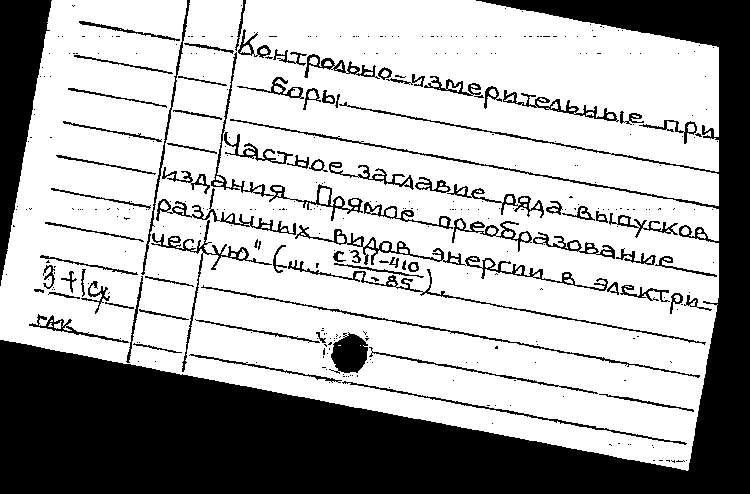 Контрольно-измерительные при
боры.
Частное заглавие ряда выпусков
издания "Прямое преобразование
различных видов энергии в электри-
ческую." (ш.: С311-410
П-85).